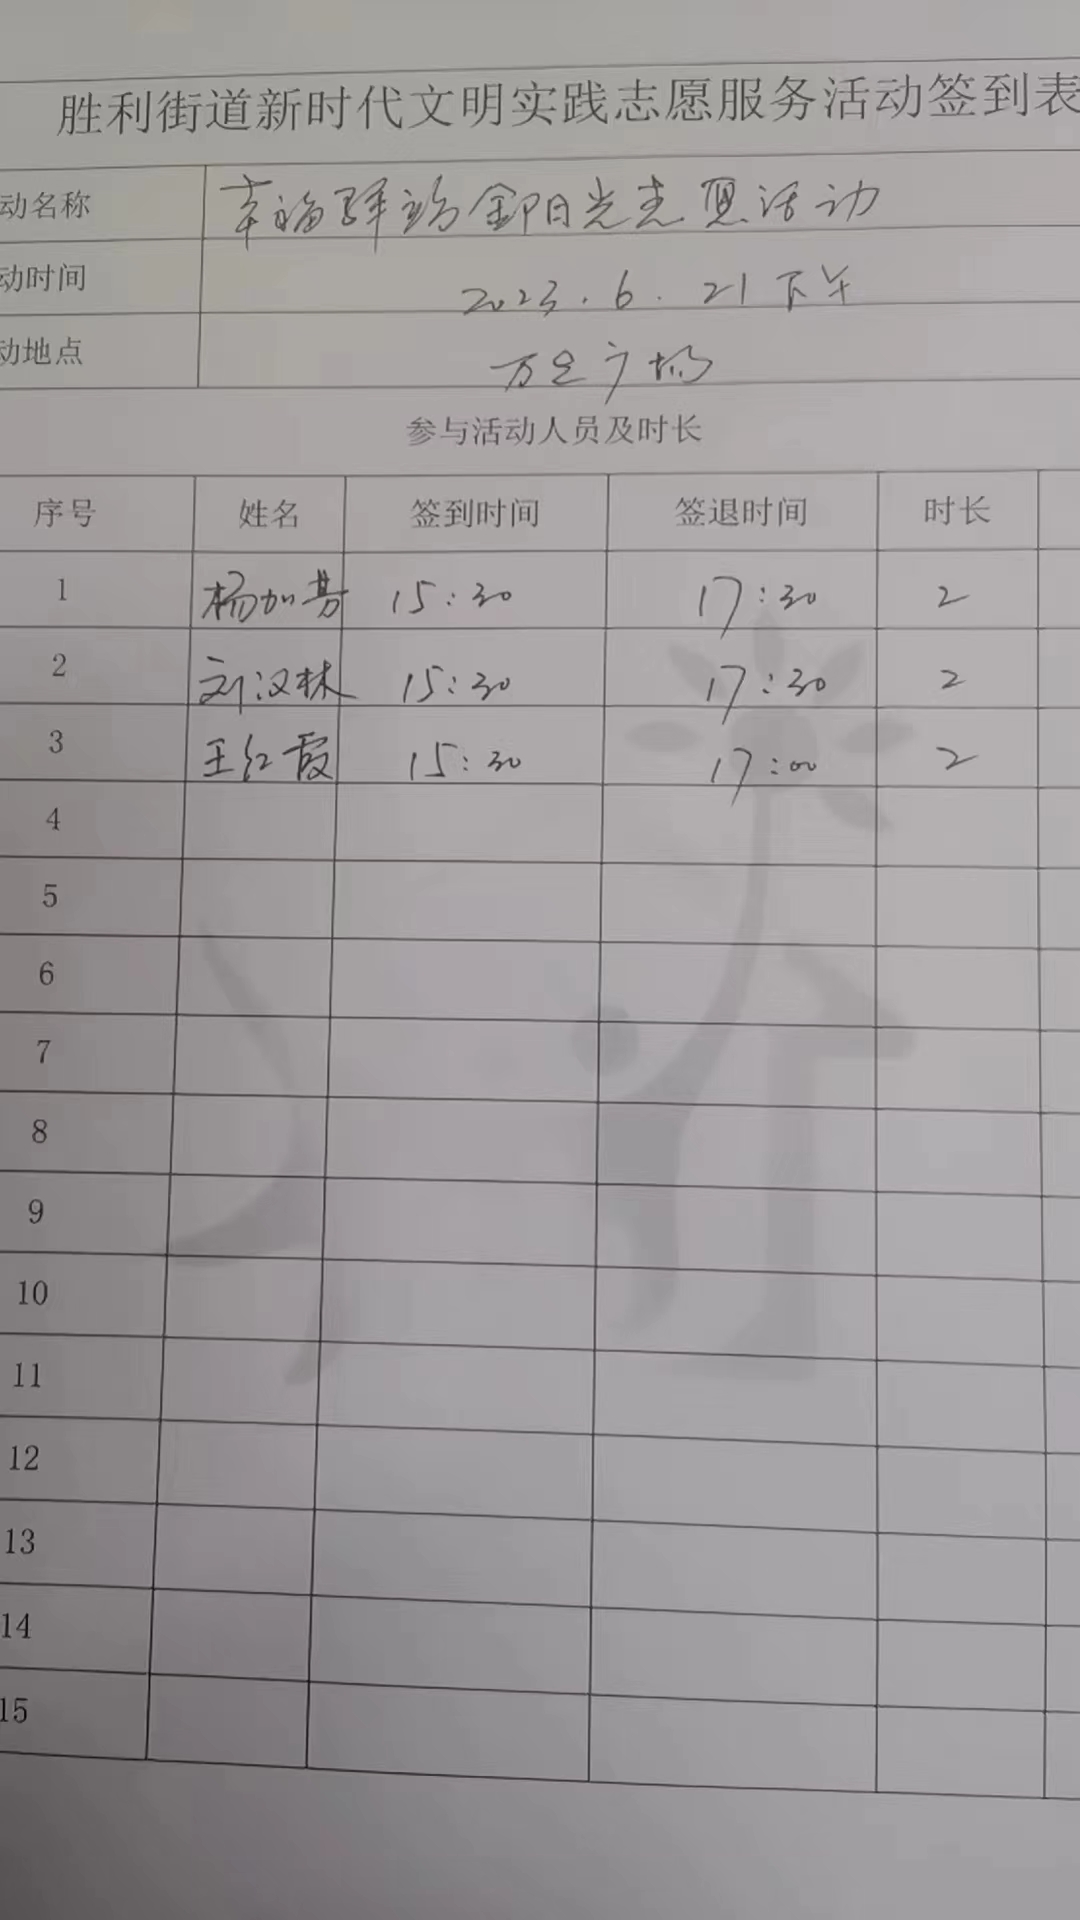 胜利街道新时代文明实践志愿服务活动签到表
动名称 幸福驿站鄞阳光志愿活动
动时间 2023.6.21下午
动地点 万达广场
参与活动人员及时长
序号 姓名 签到时间 签退时间 时长
1 杨加芬 15:30 17:30 2
2 刘汉林 15:30 17:30 2
3 王红霞 15:30 17:00 2
4
5
6
7
8
9
10
11
12
13
14
15